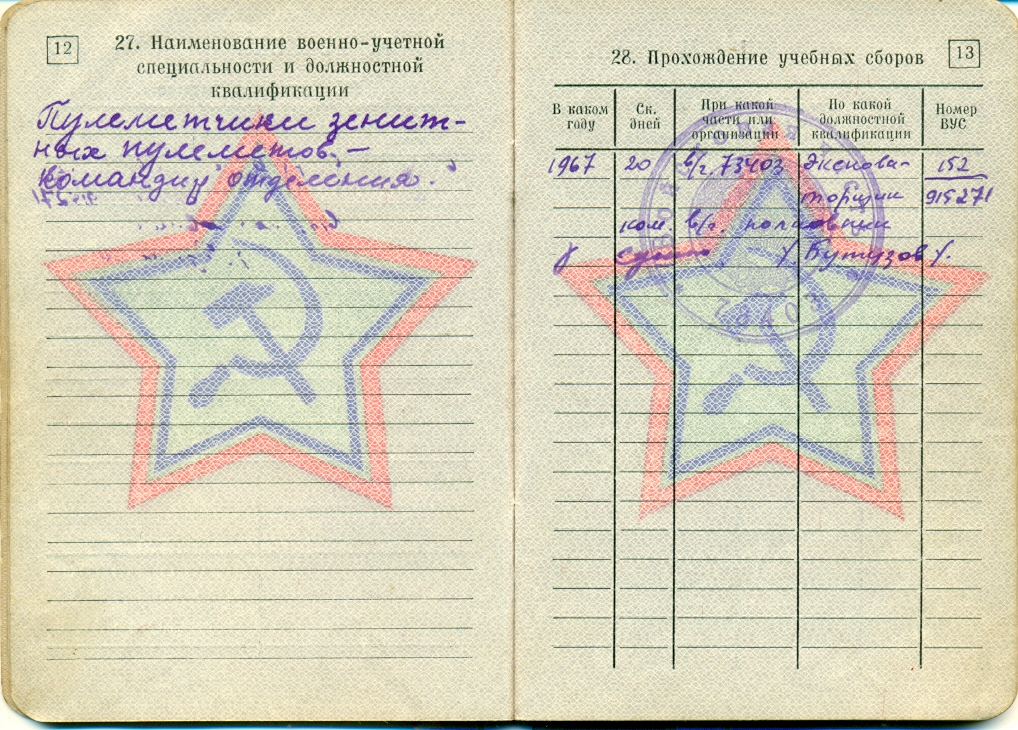 12
27. Наименование военно-учетной
специальности и должностной
квалификации
Пулеметчики зенит-
ных пулеметов. -
Командир отделения.
13
28. Прохождение учебных сборов
В каком году
Ск. дней
При какой части или организации
По какой должностной квалификации
Номер ВУС
1967 20 в/ч. 73403 Экскова- 152
торщик 915271
ком. в/ч. полковник
Бутузов